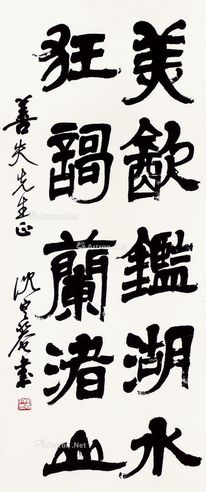 美鑑湖水
狂謌蘭渚山
善夫先生正
沈定庵書